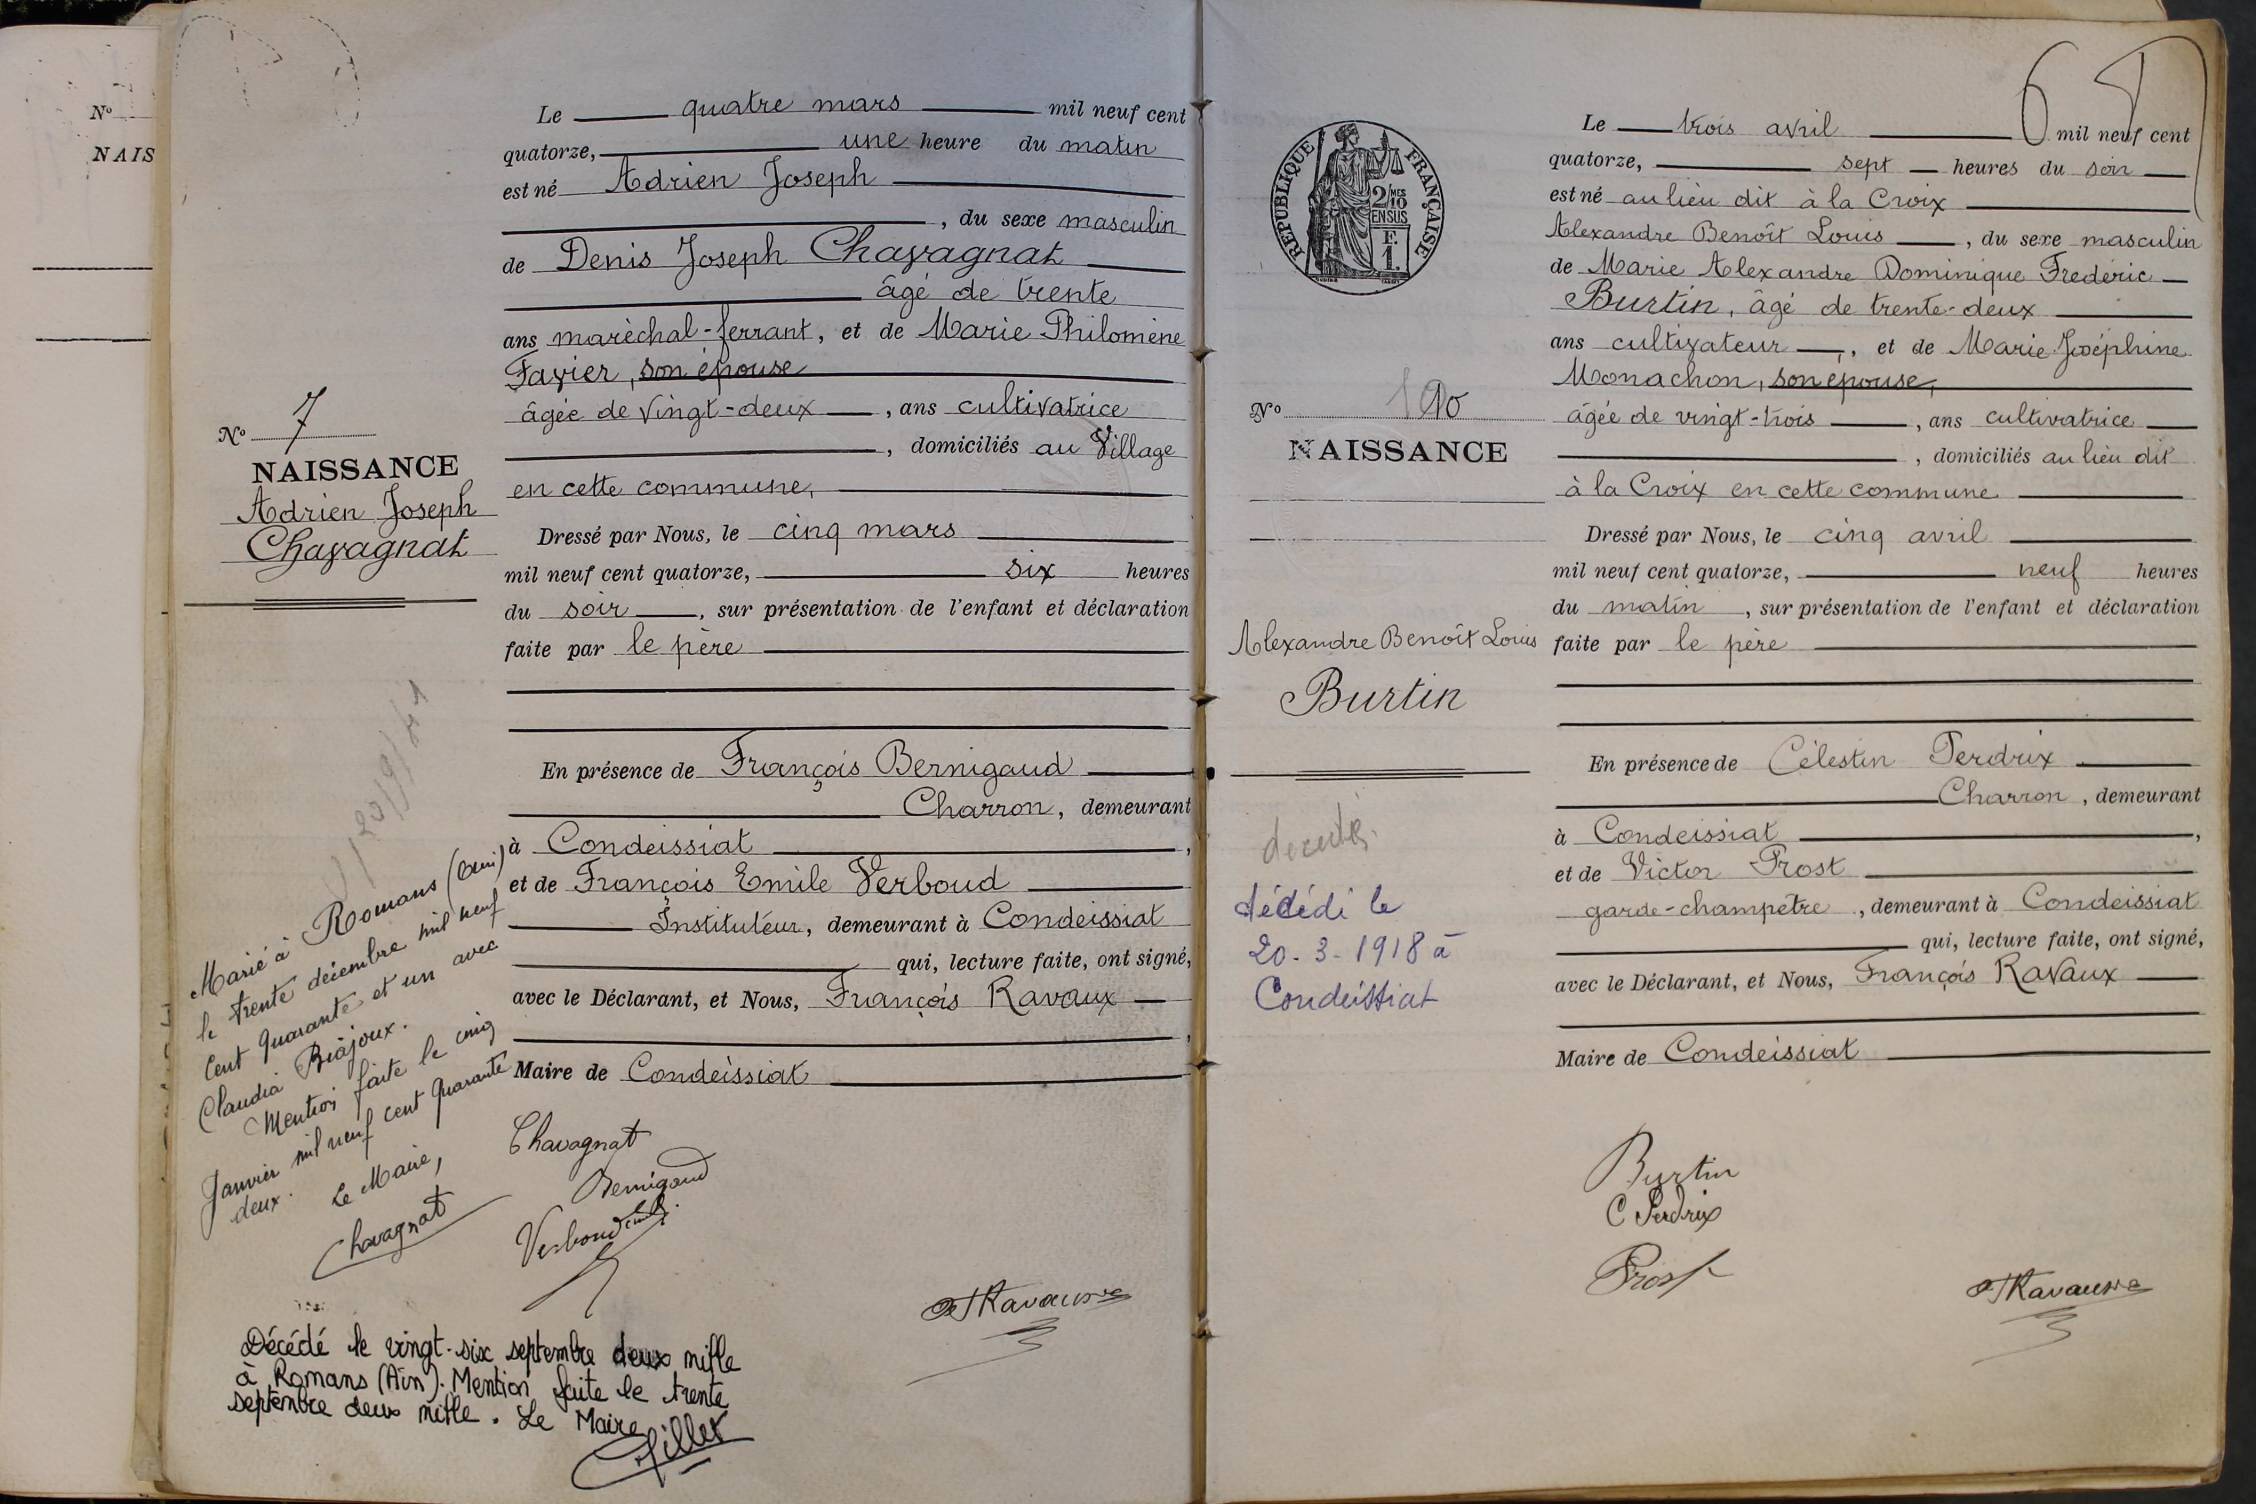 Nº
NAIS
Le quatre mars mil neuf cent
quatorze, une heure du matin
est né Adrien Joseph
, du sexe masculin
de Denis Joseph Chavagnat
âgé de trente
ans maréchal-ferrant, et de Marie Philomène
Favier, son épouse
âgée de vingt-deux , ans cultivatrice
, domiciliés au Village
en cette commune,
Nº 7
NAISSANCE
Adrien Joseph
Chavagnat
Dressé par Nous, le cinq mars
mil neuf cent quatorze, six heures
du soir , sur présentation de l'enfant et déclaration
faite par le père
En présence de François Bernigaud
Charron, demeurant
à Condeissiat ,
et de François Emile Verboud
Instituteur, demeurant à Condeissiat
qui, lecture faite, ont signé,
avec le Déclarant, et Nous, François Ravaux
,
Maire de Condeissiat
Marié à Romans (Ain)
le trente décembre mil neuf
cent quarante et un avec
Claudia Béajoux.
Mention faite le cinq
Janvier mil neuf cent quarante
deux. Le Maire,
Chavagnat
Chavagnat
Bernigaud
Verboud
Ravaux
Décédé le vingt-six septembre deux mille
à Romans (Ain). Mention faite le trente
septembre deux mille. Le Maire
Gillet
RÉPUBLIQUE FRANÇAISE
2/MES
10
EN SUS
F.
1.
Le trois avril mil neuf cent
quatorze, sept heures du soir
est né au lieu dit à la Croix
Alexandre Benoît Louis , du sexe masculin
de Marie Alexandre Dominique Frédéric
Burtin, âgé de trente-deux
ans cultivateur , et de Marie Joséphine
Monachon, son épouse,
âgée de vingt-trois , ans cultivatrice
, domiciliés au lieu dit
à la Croix en cette commune
Nº 10
NAISSANCE
Alexandre Benoît Louis
Burtin
Dressé par Nous, le cinq avril
mil neuf cent quatorze, neuf heures
du matin , sur présentation de l'enfant et déclaration
faite par le père
En présence de Célestin Perdrix
Charron , demeurant
à Condeissiat ,
et de Victor Prost
garde-champêtre , demeurant à Condeissiat
qui, lecture faite, ont signé,
avec le Déclarant, et Nous, François Ravaux
Maire de Condeissiat
décédé le
20-3-1918 à
Condeissiat
Burtin
C Perdrix
Prost
Ravaux